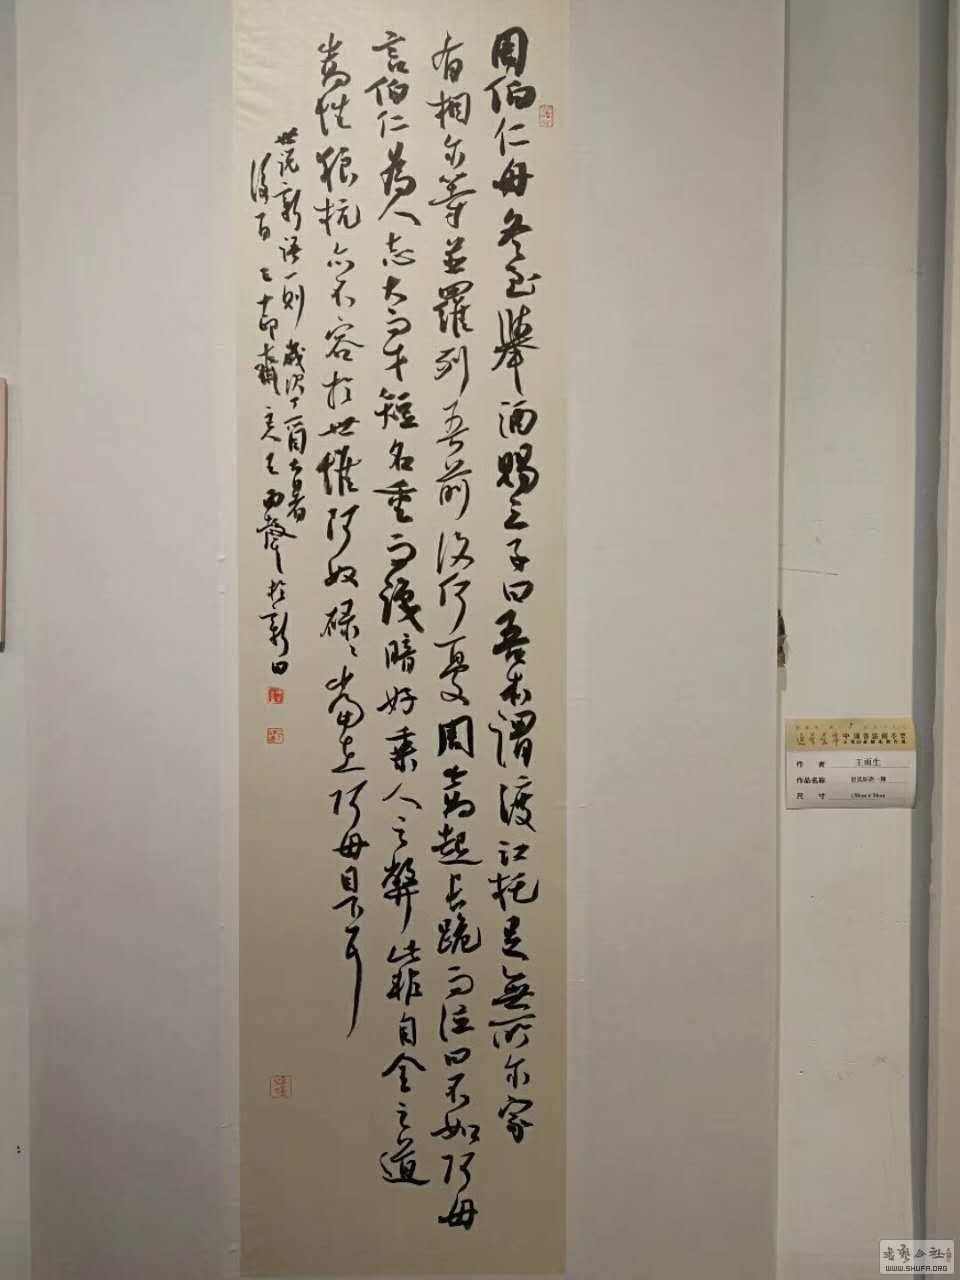 周伯仁母冬至舉酒賜三子曰吾本謂渡江托足無所尔家
有相尔等並羅列吾前復何憂周嵩起長跪而泣曰不如阿母
言伯仁為人志大而才短名重而識暗好乗人之弊此非自全之道
嵩性狼抗亦不容於世惟阿奴碌〻當在阿母目下耳
世説新语一則 歲次丁酉大暑
後百二十印齋主王雨聲於新田
中國書法
作者 王雨生
作品名称 世说新语一则
尺寸
书艺公社
WWW.SHUFA.ORG